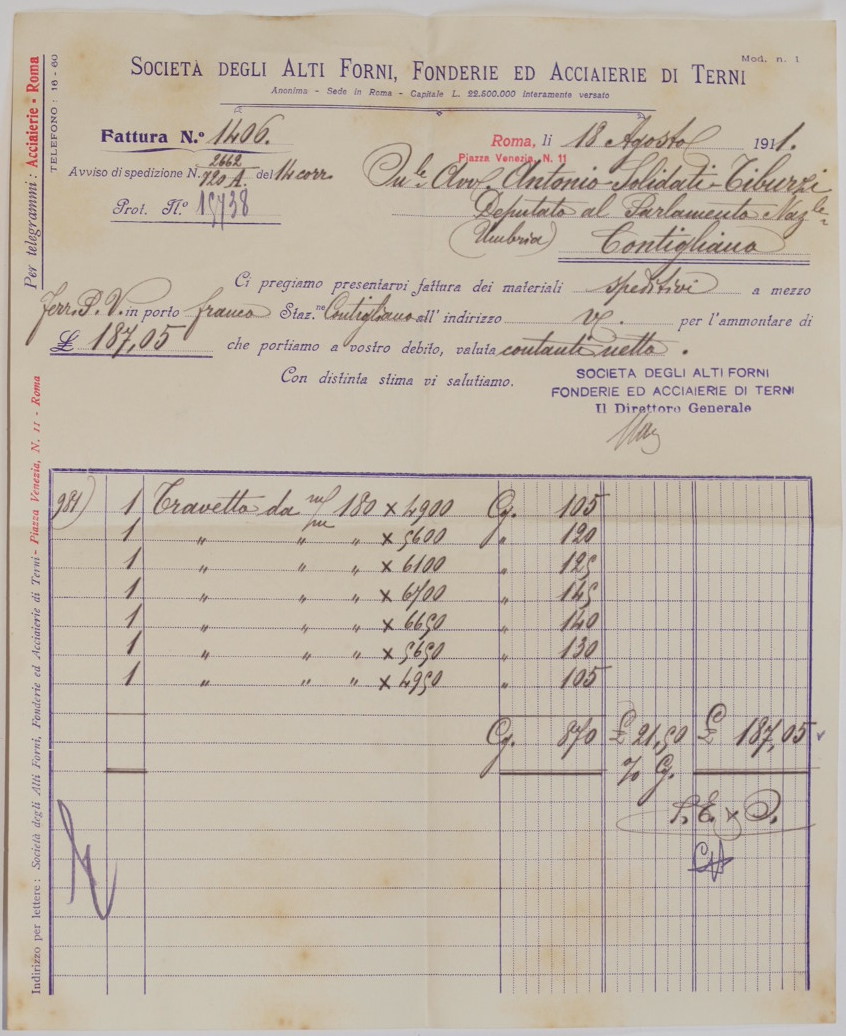 Mod. n. 1
SOCIETÀ DEGLI ALTI FORNI, FONDERIE ED ACCIAIERIE DI TERNI
Anonima - Sede in Roma - Capitale L. 22.500.000 interamente versato
Per telegrammi: Acciaierie - Roma
TELEFONO: 16-60
Fattura N.° 1406.
Roma, li 18 Agosto 1911.
Piazza Venezia, N. 11
Avviso di spedizione N. 2662 / 720 A. del 14 corr.
Prot. N.° 15738
On.le Avv. Antonio Solidati-Tiburzi
Deputato al Parlamento Naz.le
(Umbria) Contigliano
Ci pregiamo presentarvi fattura dei materiali speditivi a mezzo
Ferr. P. V. in porto franco Staz.ne Contigliano all' indirizzo vs. per l'ammontare di
₤ 187,05 che portiamo a vostro debito, valuta contanti netto.
Con distinta stima vi salutiamo.
SOCIETA DEGLI ALTI FORNI
FONDERIE ED ACCIAIERIE DI TERNI
Il Direttore Generale
981) 1 Travetto da m/m 180 × 4900 Cg. 105
1 " " " × 5600 " 120
1 " " " × 6100 " 125
1 " " " × 6700 " 145
1 " " " × 6650 " 140
1 " " " × 5650 " 130
1 " " " × 4950 " 105
Cg. 870 ₤ 21,50 ₤ 187,05
% Cg.
S. E. & O.
Indirizzo per lettere: Società degli Alti Forni, Fonderie ed Acciaierie di Terni - Piazza Venezia, N. 11 - Roma